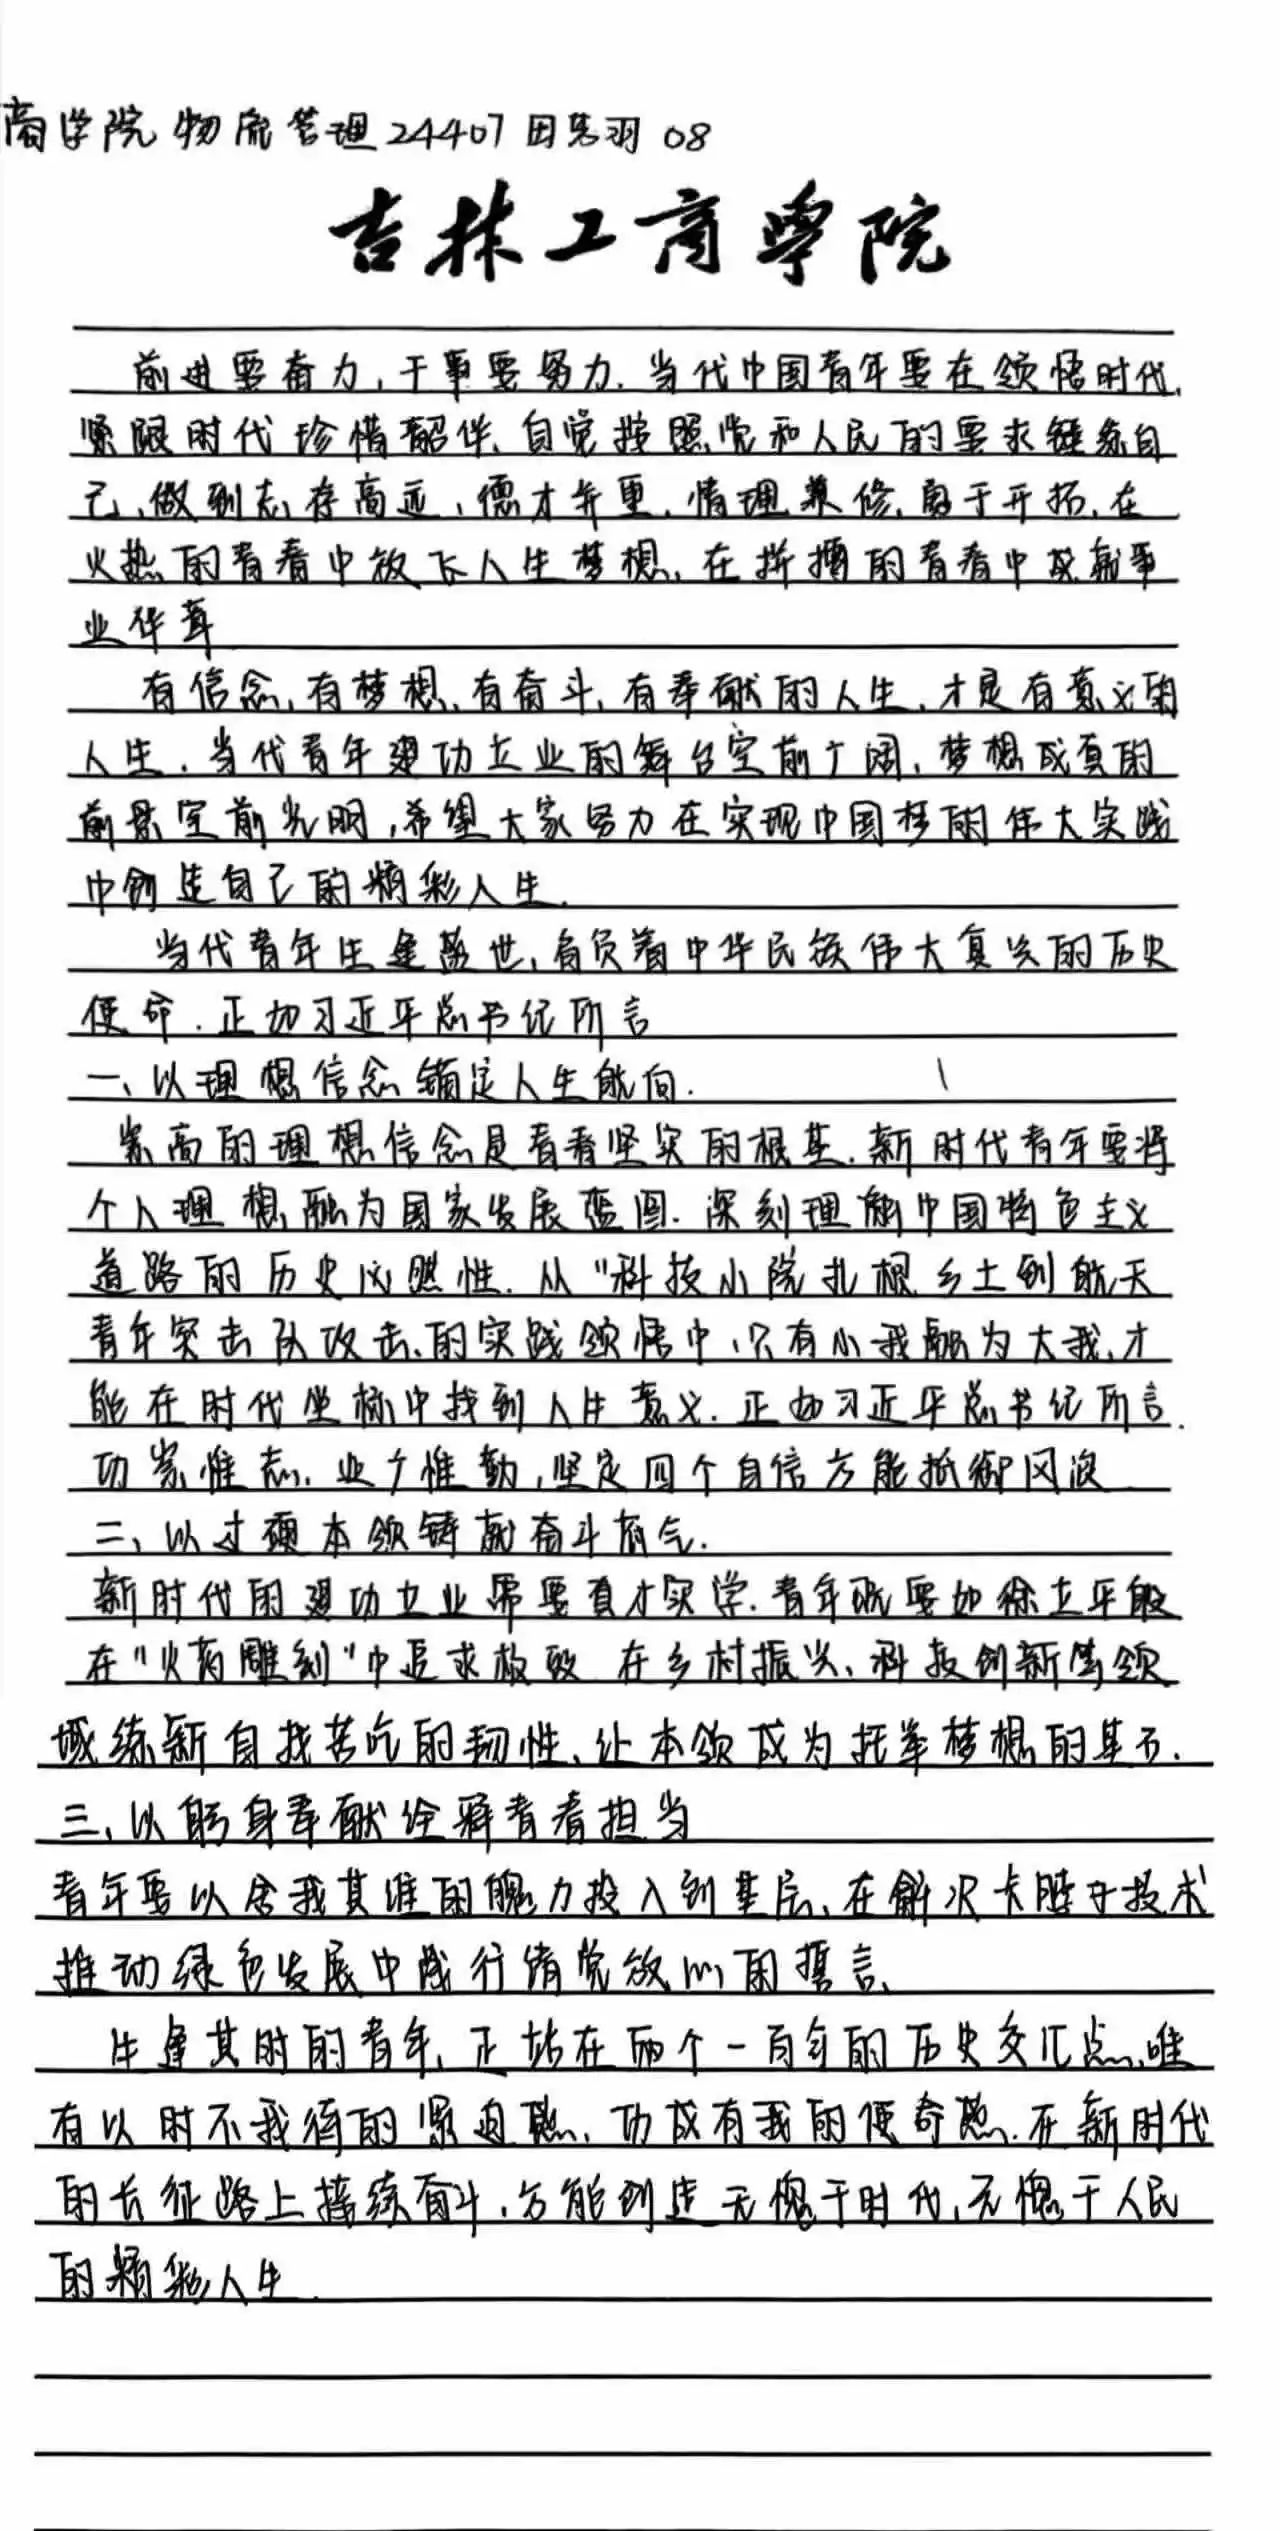 商学院 物流管理24407 田 羽 08
吉林工商學院
前进要奋力,干事要努力.当代中国青年要在领悟时代,
紧跟时代 珍惜韶华、自觉按照党和人民的要求锤练自
己、做到志存高远,德才并重,情理兼修,勇于开拓,在
火热的青春中放飞人生梦想、在拼搏的青春中成就事
业华章
有信念、有梦想、有奋斗、有奉献的人生、才是有意义的
人生.当代青年建功立业的舞台空前广阔、梦想成真的
前景空前光明,希望大家努力在实现中国梦的伟大实践
中创造自己的精彩人生.
当代青年生逢盛世,肩负着中华民族伟大复兴的历史
使命.正如习近平总书记所言
一、以理想信念锚定人生航向.
崇高的理想信念是青春坚实的根基.新时代青年要将
个人理想融为国家发展蓝图.深刻理解中国特色主义
道路的历史必然性.从"科技小院扎根乡土到航天
青年突击队攻击、的实践领悟中,只有小我融为大我,才
能在时代坐标中找到人生意义.正如习近平总书记所言.
功崇惟志、业广惟勤,坚定四个自信方能抵御风浪
二、以过硬本领铸就奋斗底气.
新时代的建功立业需要真才实学.青年既要如徐立平般
在"火药雕刻"中追求极致 在乡村振兴、科技创新等领
域练新自找苦吃的韧性、让本领成为托举梦想的基石.
三、以躬身奉献诠释青春担当
青年要以舍我其谁的魄力投入到基层、在解决卡脖子技术
推动绿色发展中践行请党放心的誓言、
生逢其时的青年,正站在两个一百年的历史交汇点,唯
有以时不我待的紧迫感、功成有我的使命感.在新时代
的长征路上接续奋斗,方能创造无愧于时代,无愧于人民
的精彩人生.